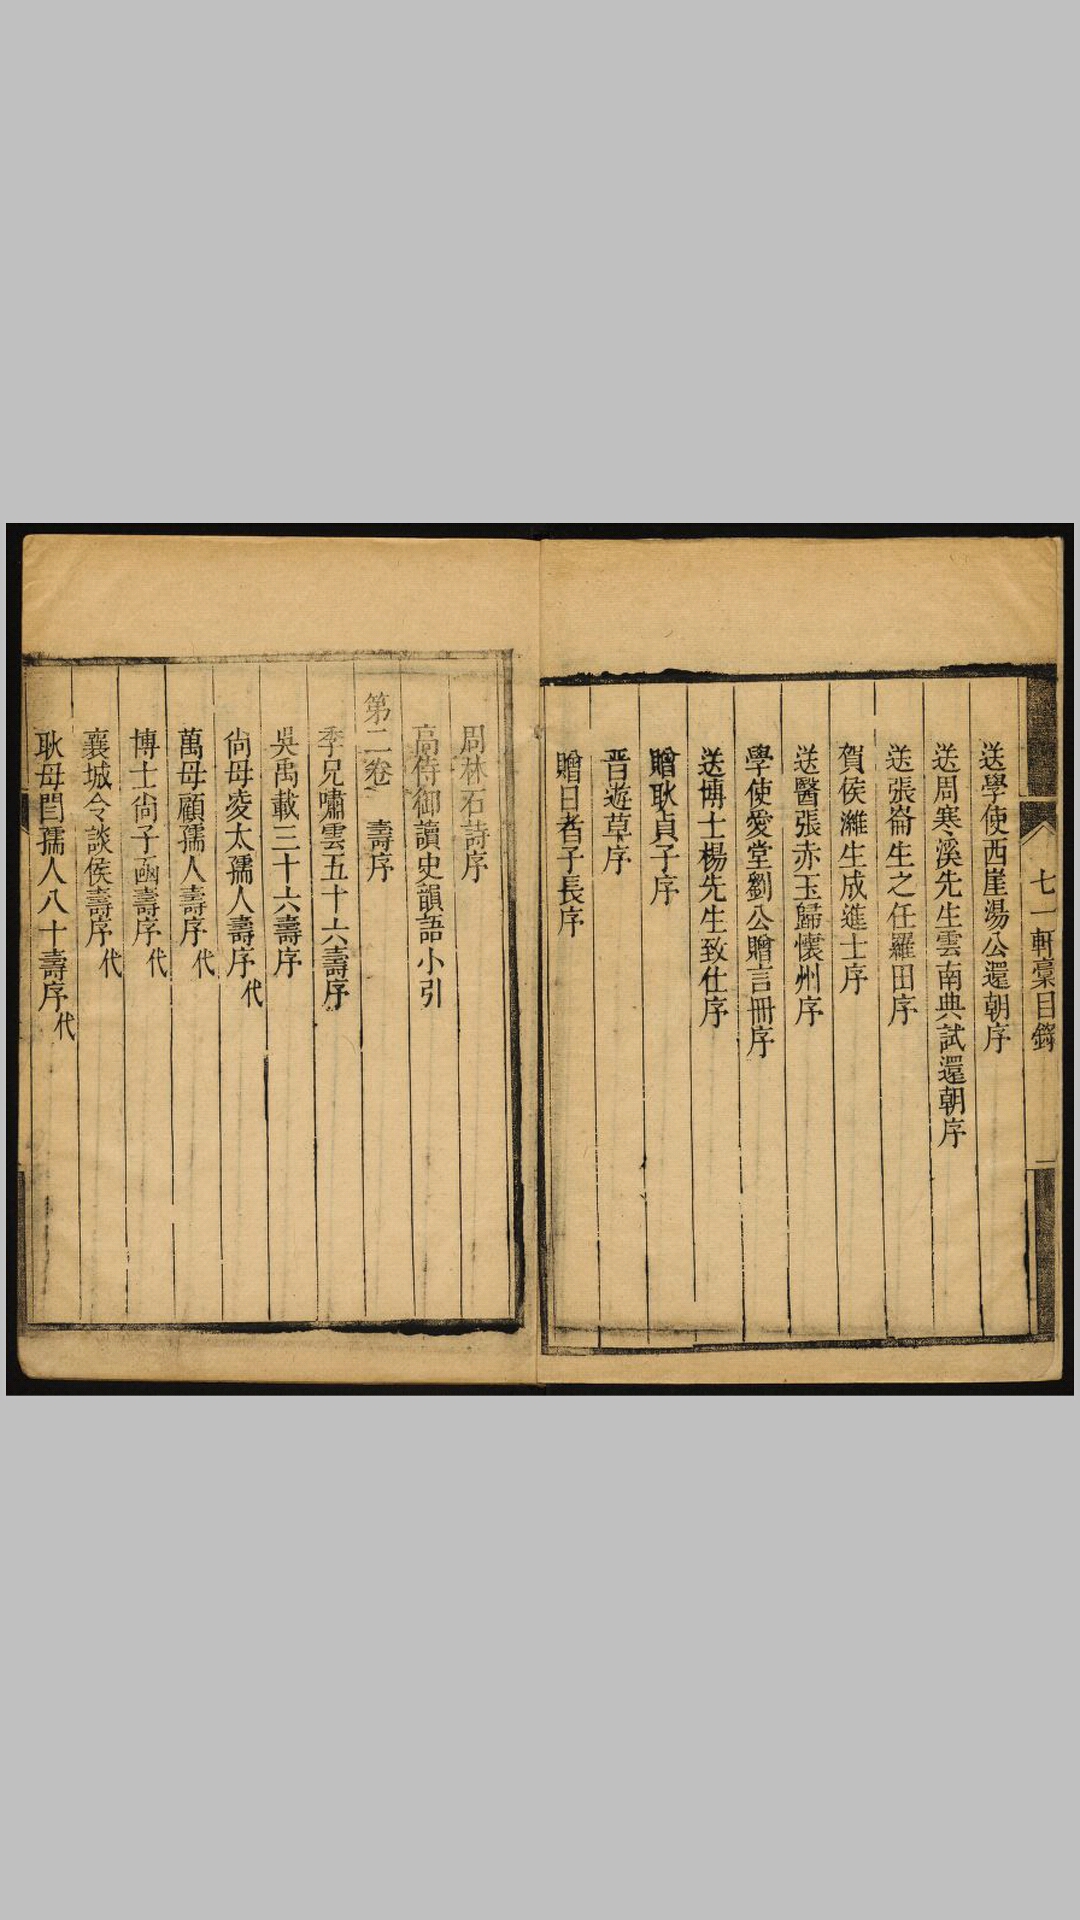 七一軒稾目錄
送學使西崖湯公還朝序
送周寒溪先生雲南典試還朝序
送張崙生之任羅田序
賀侯濰生成進士序
送醫張赤玉歸懷州序
學使愛堂劉公贈言冊序
送博士楊先生致仕序
贈耿貞子序
晋遊草序
贈日者子長序
周林石詩序
高侍御讀史韻語小引
第二卷 壽序
季兄嘯雲五十六壽序
吳禹載三十六壽序
尙母凌太孺人壽序代
萬母顧孺人壽序代
博士尙子凾壽序代
襄城令談侯壽序代
耿母閆孺人八十壽序代